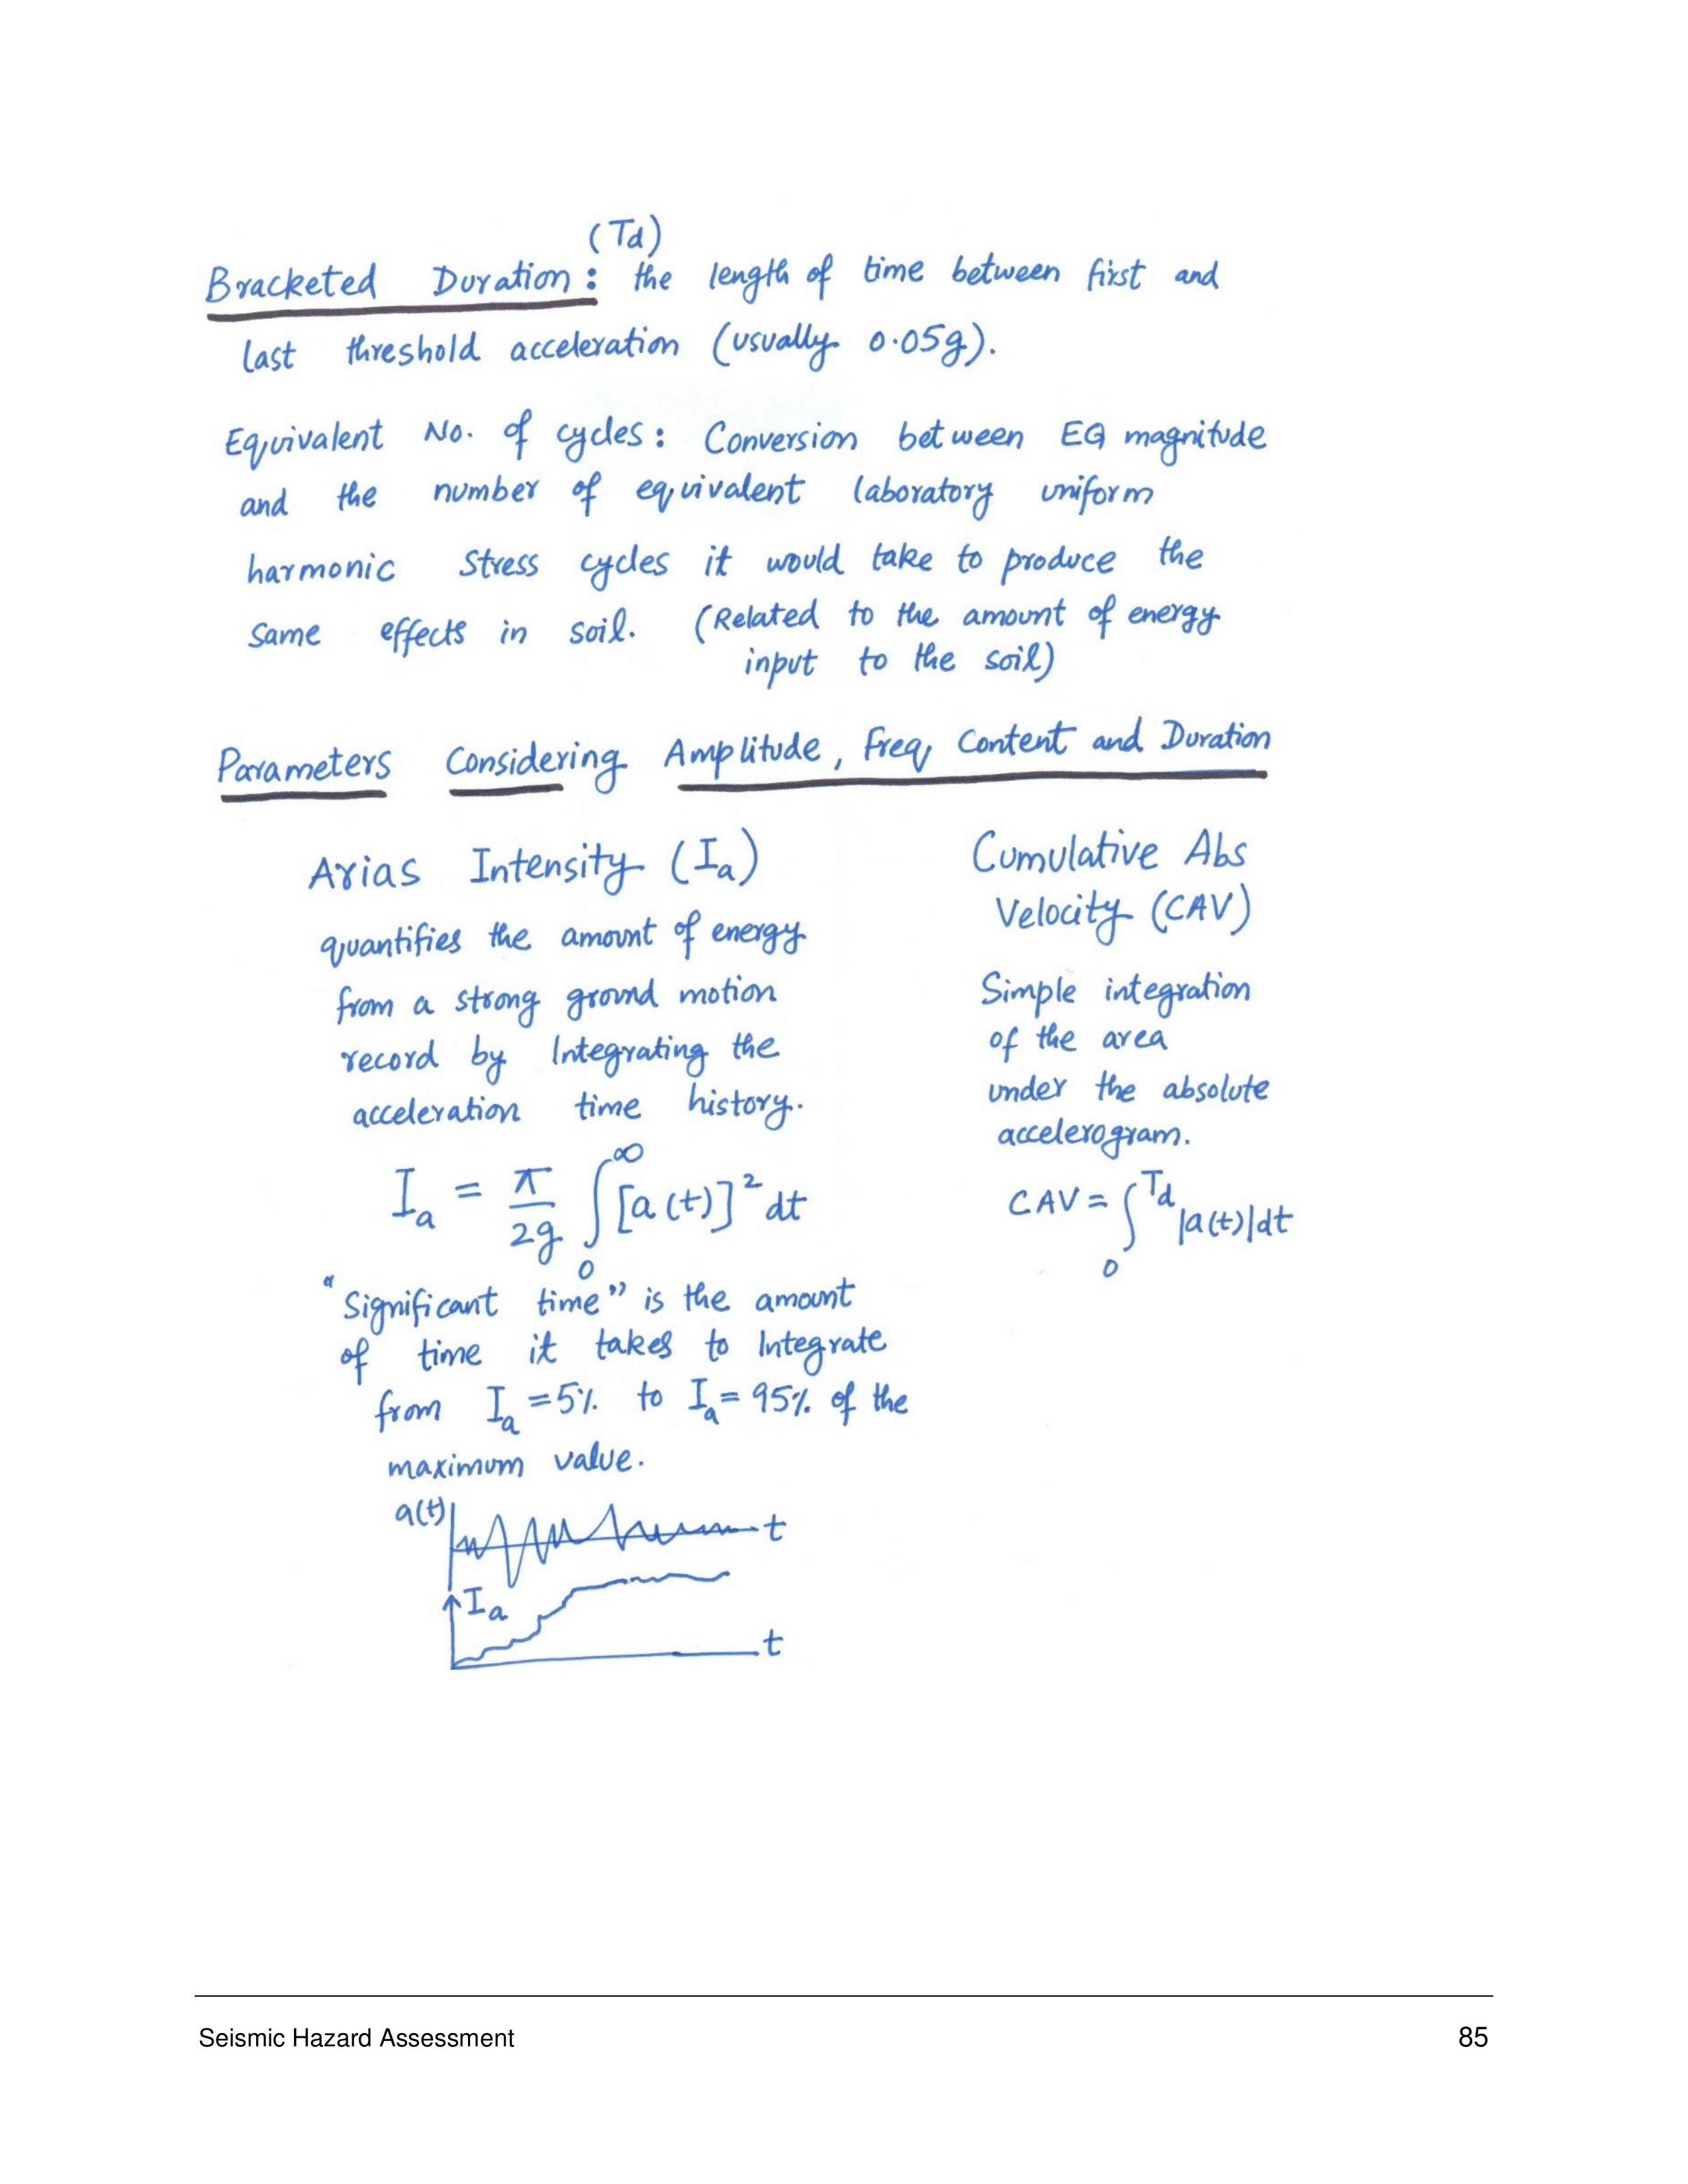 (Td)
Bracketed Duration : the length of time between first and
last threshold acceleration (usually 0.05g).
Equivalent No. of cycles : Conversion between EQ magnitude
and the number of equivalent laboratory uniform
harmonic stress cycles it would take to produce the
same effects in soil. (Related to the amount of energy
input to the soil)
Parameters Considering Amplitude, Freq, Content and Duration
Arias Intensity (Ia)
quantifies the amount of energy
from a strong ground motion
record by Integrating the
acceleration time history.
Ia = π/2g ∫₀^∞ [a(t)]² dt
"Significant time" is the amount
of time it takes to Integrate
from Ia = 5% to Ia = 95% of the
maximum value.
a(t)
t
Ia
t
Cumulative Abs
Velocity (CAV)
Simple integration
of the area
under the absolute
accelerogram.
CAV = ∫₀^Td |a(t)|dt
Seismic Hazard Assessment 85